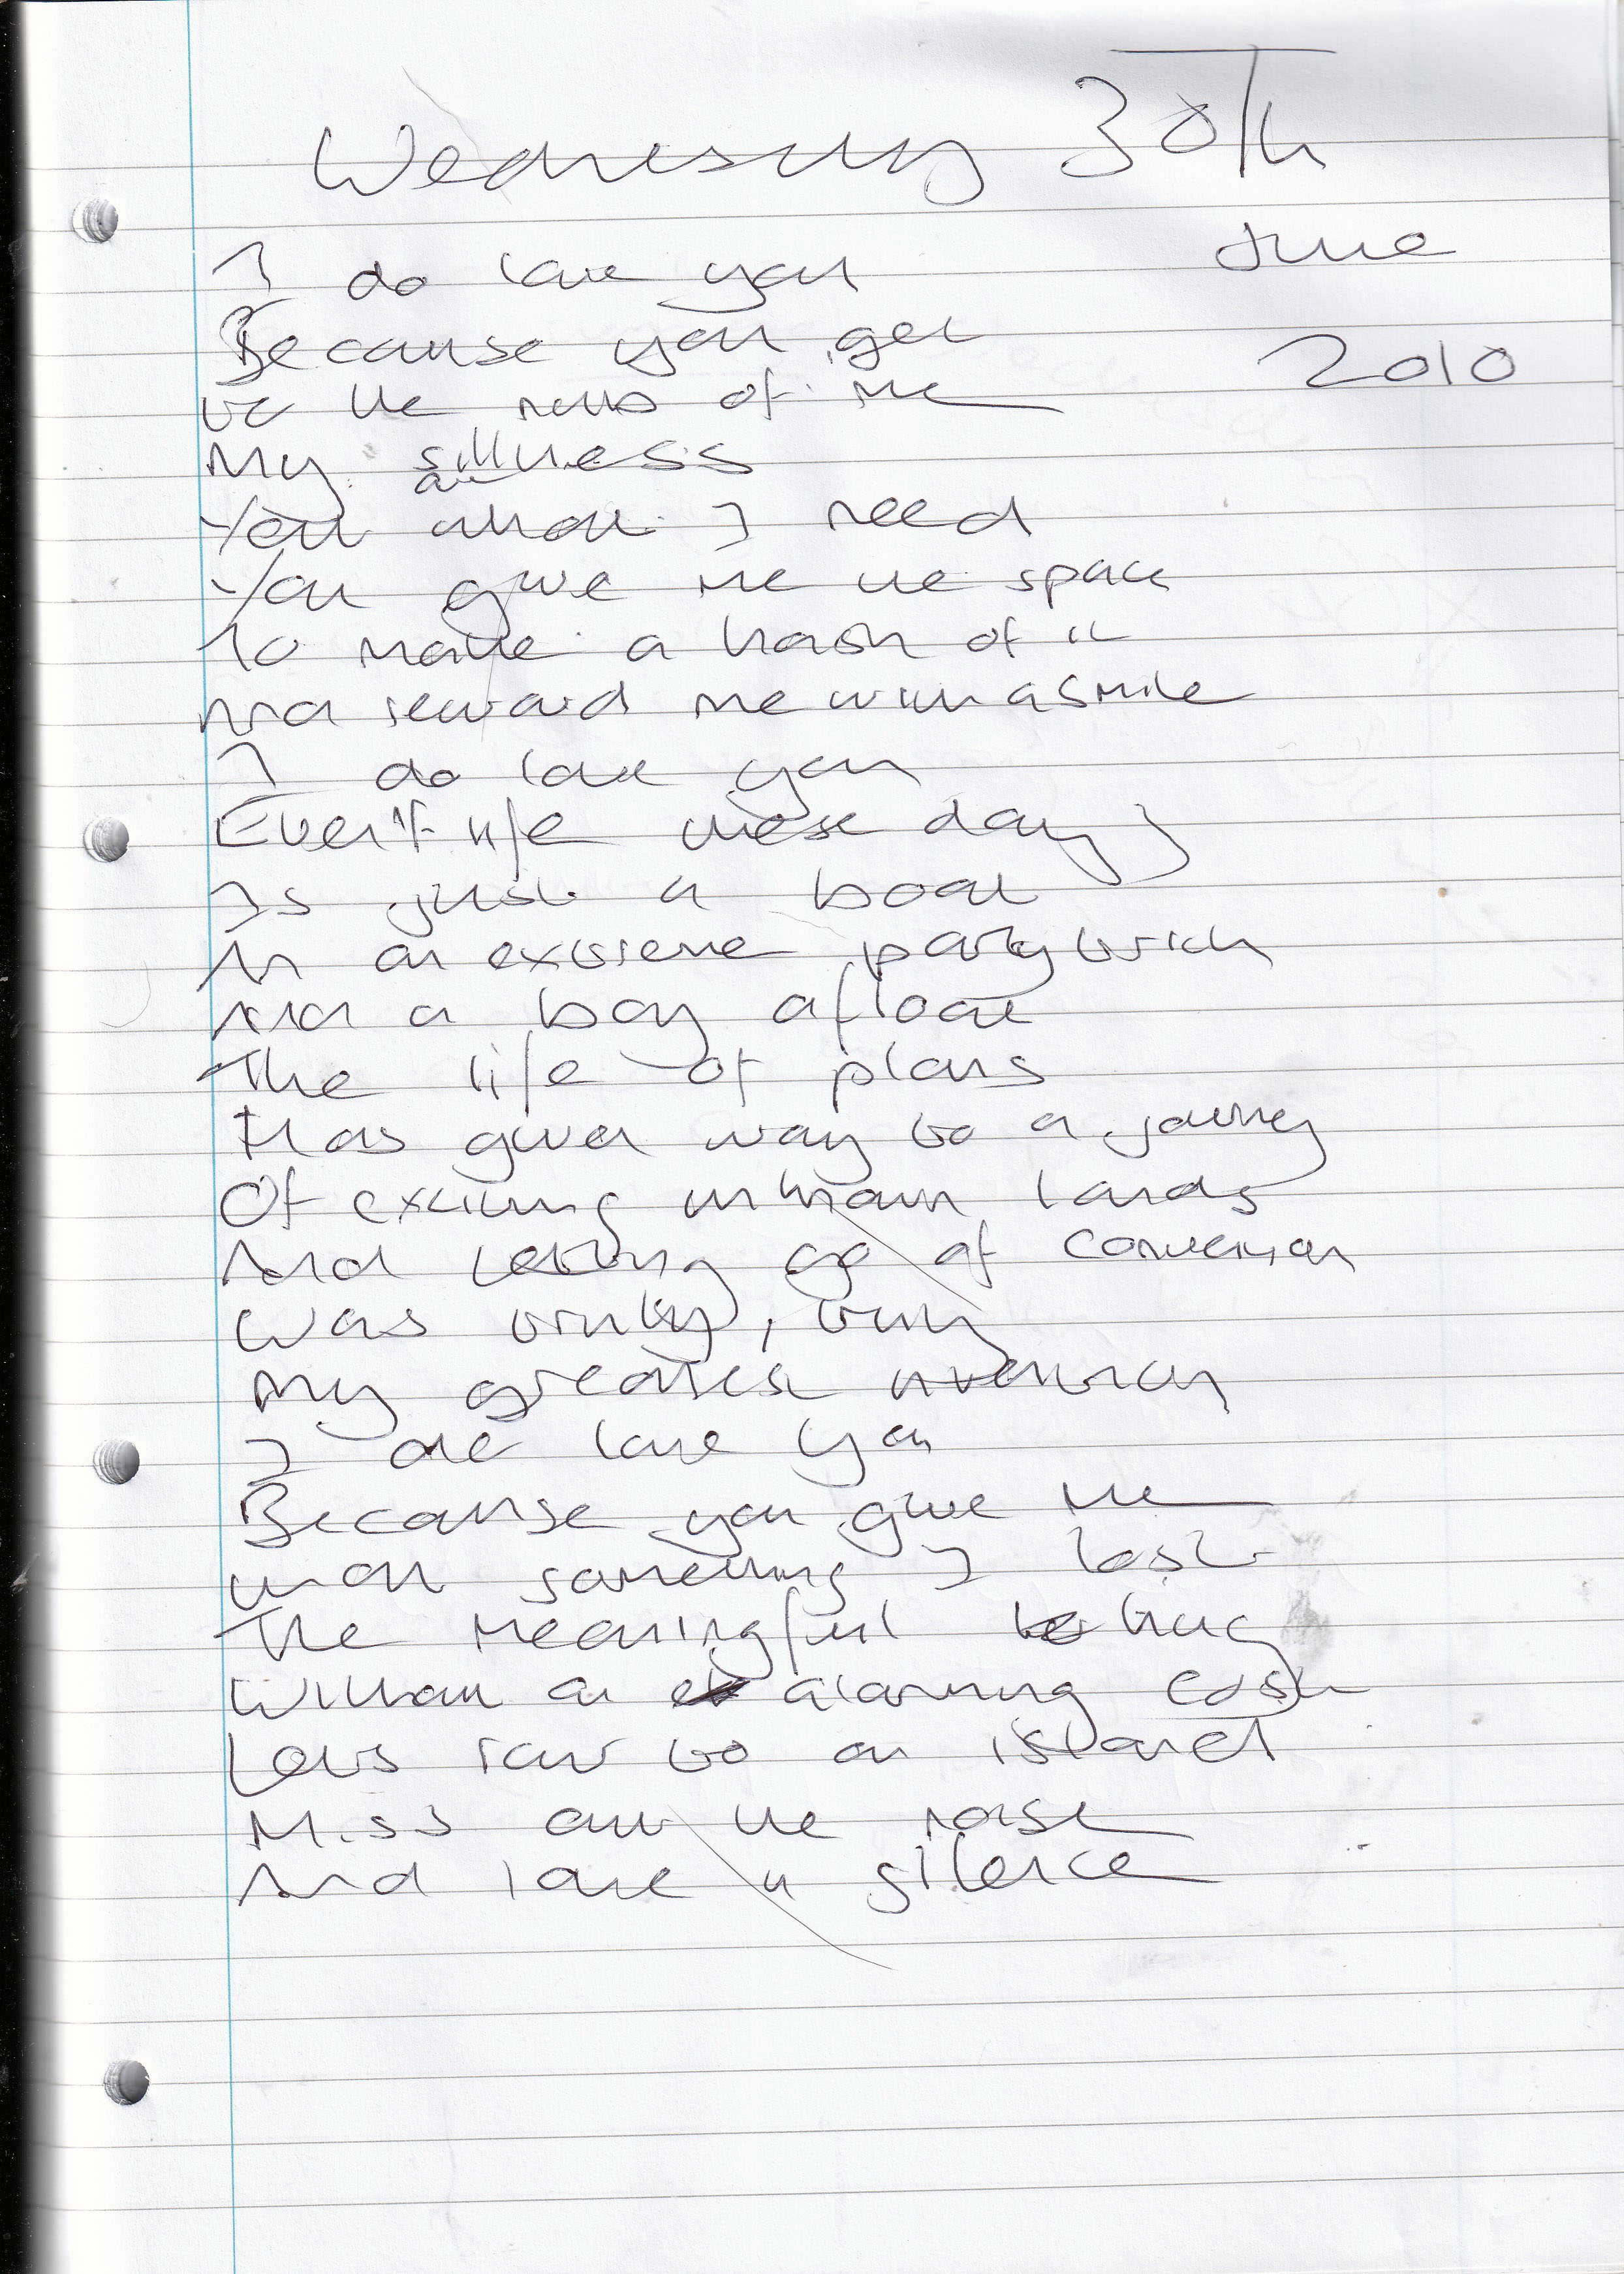 Wednesday 30th
June
2010
I do love you
Because you get
to the nubs of me
My sillness
You allow I need
You give me the space
To make a hash of it
And reward me with a smile
I do love you
Even if life these days
Is just a boat
In an extreme party trick
And a boy afloat
The life of plans
Has given way to a journey
Of exciting unknown lands
And letting go of convention
Was truly, truly
My greatest
I do love you
Because you give me
something I lost
The meaningful hug
Without an alarming cost
Lets row to an island
Miss out the noise
And love in silence